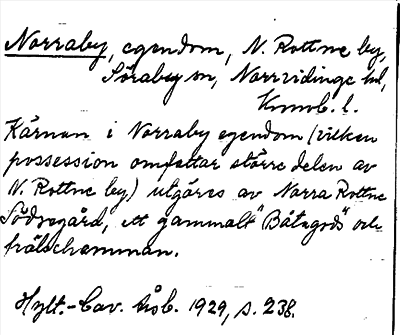 Norraby, egendom, N. Rottne by,
Söraby sn, Norrvidinge hd,
Kronob. l.
Kärnan i Norraby egendom (vilken
possession omfattar större delen av
N. Rottne by) utgöres av Norra Rottne
Södregård, ett gammalt "Båtsgods" och
frälsehemman.
Hylt.-Cav. Årsb. 1929, s. 238.